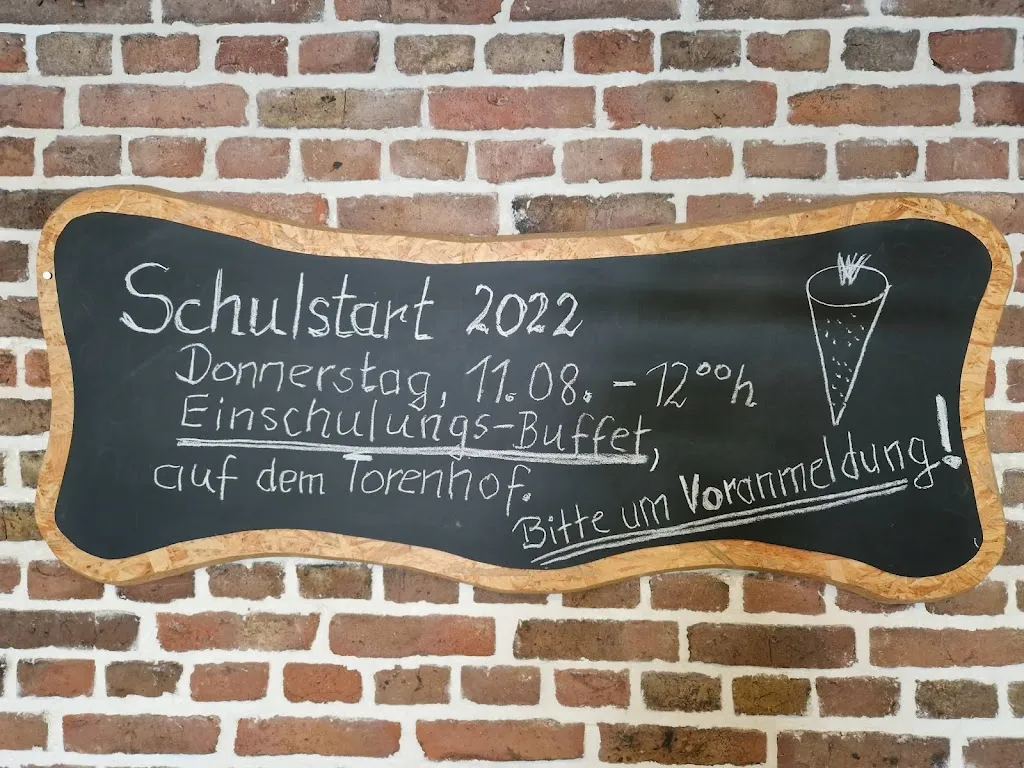 Schulstart 2022
Donnerstag, 11.08. - 12ººh
Einschulungs-Buffet,
auf dem Torenhof.
Bitte um Voranmeldung!